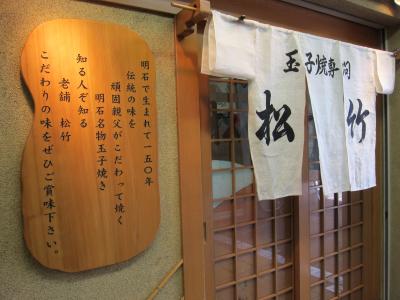 明石で生まれて一五〇年
伝統の味を
頑固親父がこだわって焼く
明石名物玉子焼き
知る人ぞ知る
老舗 松竹
こだわりの味をぜひご賞味下さい。
玉子焼専門
松竹